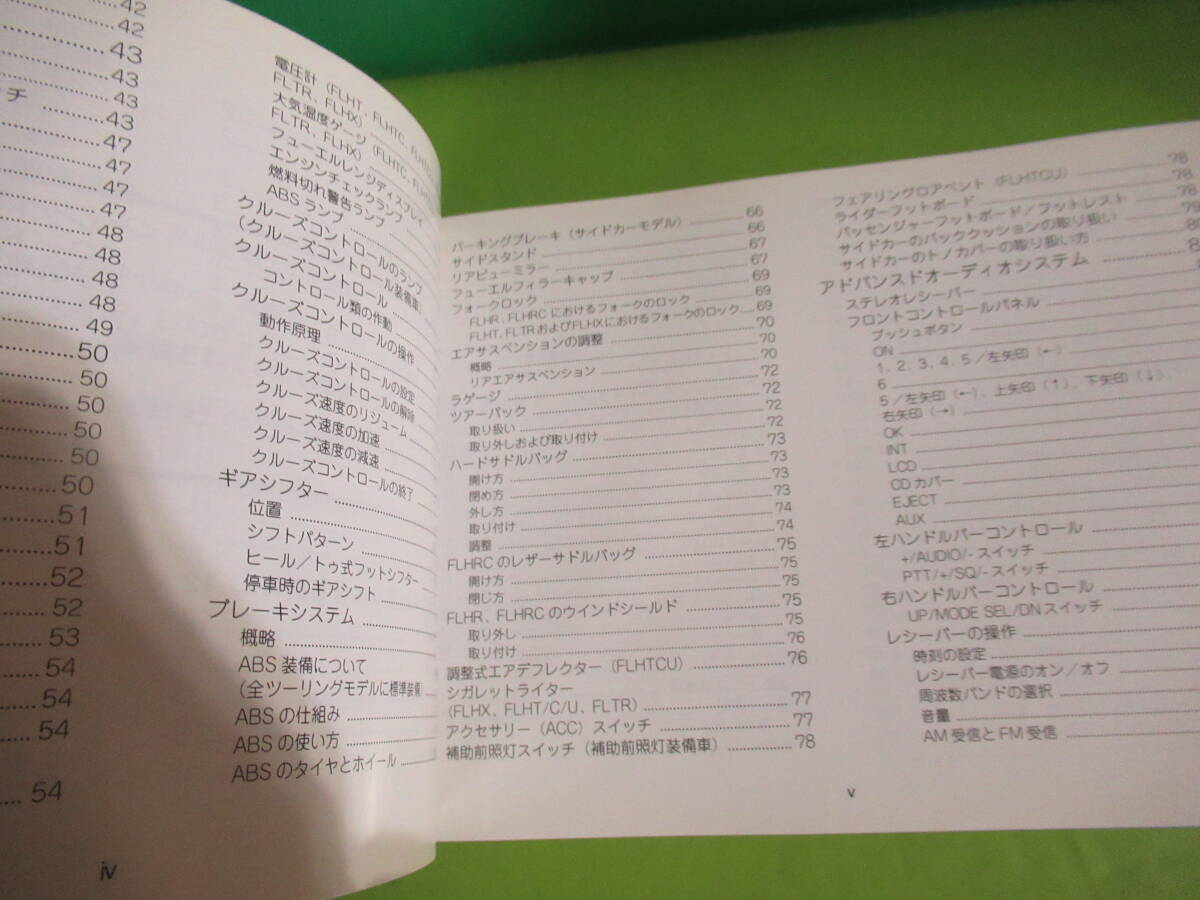 42
42
43
43
43
チ 43
47
47
47
47
48
48
48
48
49
50
50
50
50
50
50
51
51
52
52
53
54
54
54
54
iv
電圧計（FLHT、FLHTC、
FLTR、FLHX）
大気温度ゲージ（FLHTC、
FLTR、FLHX）
フューエルレンジディスプレイ
エンジンチェックランプ
燃料切れ警告ランプ
ABS ランプ
クルーズコントロールのランプ
（クルーズコントロール装備車）
クルーズコントロール
コントロール類の作動
クルーズコントロールの操作
動作原理
クルーズコントロールの設定
クルーズコントロールの解除
クルーズ速度のリジューム
クルーズ速度の加速
クルーズ速度の減速
クルーズコントロールの終了
ギアシフター
位置
シフトパターン
ヒール／トゥ式フットシフター
停車時のギアシフト
ブレーキシステム
概略
ABS 装備について
（全ツーリングモデルに標準装備
ABS の仕組み
ABS の使い方
ABS のタイヤとホイール
パーキングブレーキ（サイドカーモデル） 66
サイドスタンド 66
リアビューミラー 67
フューエルフィラーキャップ 67
フォークロック 69
FLHR、FLHRC におけるフォークのロック 69
FLHT、FLTRおよびFLHXにおけるフォークのロック 69
エアサスペンションの調整 70
概略 70
リアエアサスペンション 70
ラゲージ 72
ツアーパック 72
取り扱い 72
取り外しおよび取り付け 72
ハードサドルバッグ 73
開け方 73
閉め方 73
外し方 73
取り付け 74
調整 74
FLHRC のレザーサドルバッグ 75
開け方 75
閉じ方 75
FLHR、FLHRC のウインドシールド 75
取り外し 75
取り付け 76
調整式エアデフレクター（FLHTCU） 76
シガレットライター
（FLHX、FLHT/C/U、FLTR） 77
アクセサリー（ACC）スイッチ 77
補助前照灯スイッチ（補助前照灯装備車） 78
フェアリングロアベント（FLHTCU） 78
ライダーフットボード 78
パッセンジャーフットボード／フットレスト 78
サイドカーのバッククッションの取り扱い
サイドカーのトノカバーの取り扱い方
アドバンスドオーディオシステム
ステレオレシーバー
フロントコントロールパネル
プッシュボタン
ON
1、2、3、4、5／左矢印（←）
6
5／左矢印（←）、上矢印（↑）、下矢印（↓）、
右矢印（→）
OK
INT
LCD
CD カバー
EJECT
AUX
左ハンドルバーコントロール
+/AUDIO/- スイッチ
PTT/+/SQ/- スイッチ
右ハンドルバーコントロール
UP/MODE SEL/DN スイッチ
レシーバーの操作
時刻の設定
レシーバー電源のオン／オフ
周波数バンドの選択
音量
AM 受信と FM 受信
v